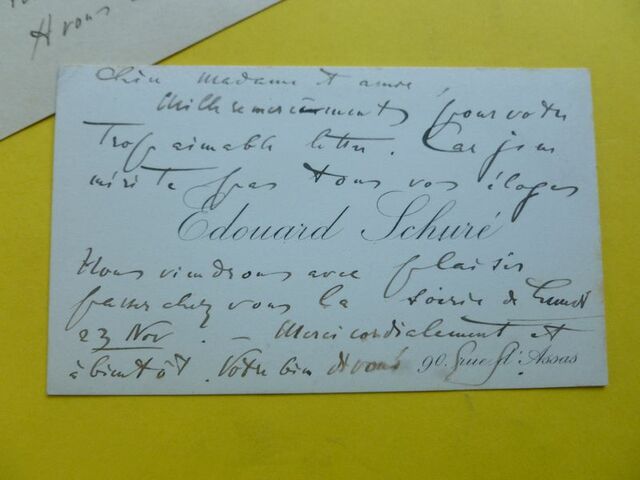 A vous
Chère madame et amie,
Mille remerciements pour votre
Trop aimable lettre. Car je ne
mérite pas tous vos éloges
Edouard Schuré
Nous viendrons avec plaisir
passer chez vous la soirée de Lundi
23 Nov. — Merci cordialement et
à bientôt. Votre bien dévoué
90. Rue d'Assas